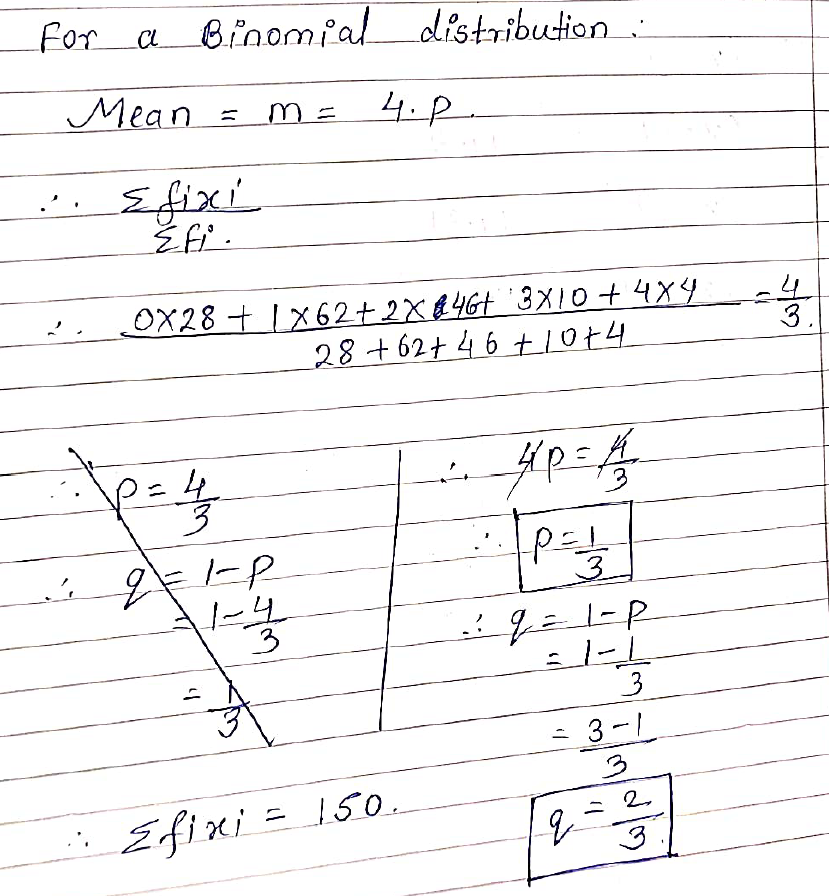 For a Binomial distribution :
Mean = m = 4.p.
∴ Σfixi / Σfi.
∴ 0×28 + 1×62+2×46+ 3×10 + 4×4 / 28+62+46+10+4 = 4/3.
∴ p = 4/3
∴ q = 1-p
= 1-4/3
= 1/3
∴ 4p = 4/3
∴ p = 1/3
∴ q = 1-p
= 1-1/3
= 3-1/3
q = 2/3.
∴ Σfixi = 150.